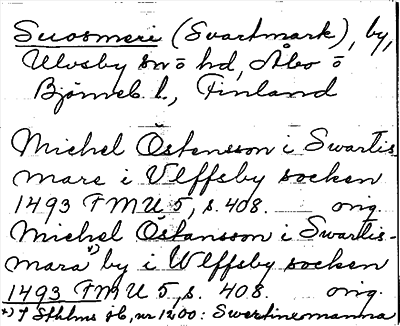 Suosmeri (Svartmark), by,
Ulvsby sn o hd, Åbo o
Björneb. l., Finland
Michel Östensson i Swartis-
mare i Vlffsby socken
1493 FMU 5, s. 408. orig.
Michel Östansson i Swartis-
mara*) by i Wlffsby socken
1493 FMU 5, s. 408. orig.
*) I Sthlms jb, nr 1200: Swertinemanna